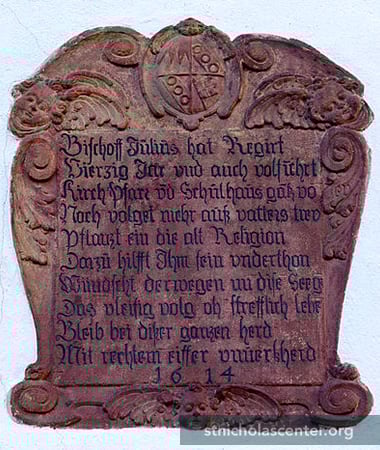 Bischoff Julius hat Regirt
Vierzig Jar vnd auch volfuhrt
Kirch Pfarr vd Schulhauß
Noch volget mehr auß vatters trew
Pflantzt ein die alt Religion
Darzu hilfft Ihm sein vnderthon
Wündscht derwegen
Das vleisig volg
Bleib bei diser gantzen herd
Mit rechtem eiffer
1614
stnicholascenter.org